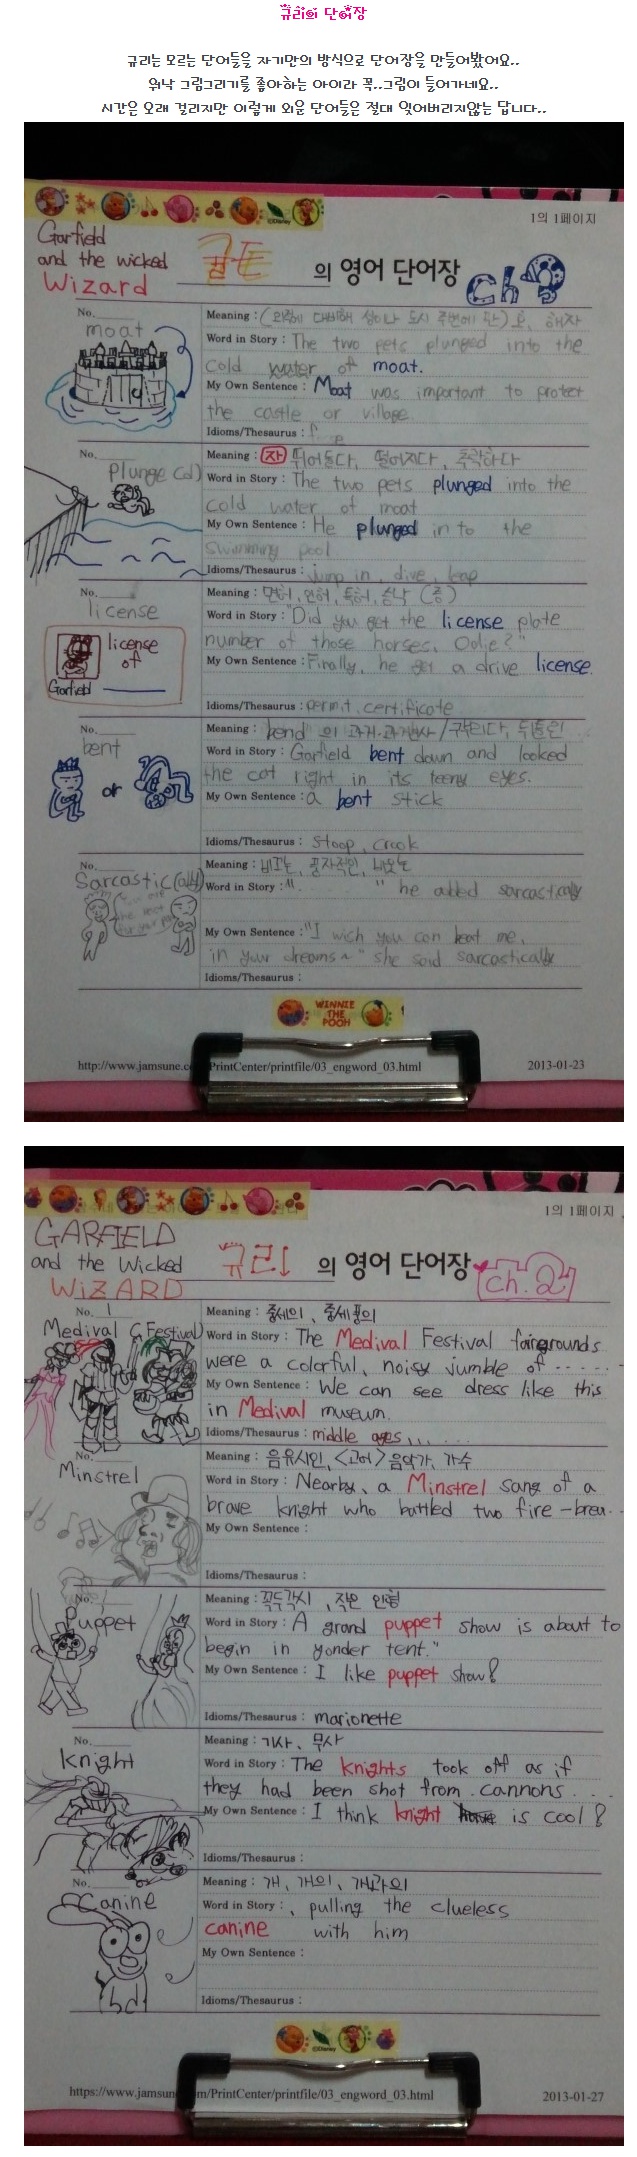 규리의 단어장
규리는 모르는 단어들을 자기만의 방식으로 단어장을 만들어봤어요..
워낙 그림그리기를 좋아하는 아이라 꼭..그림이 들어가네요..
시간은 오래 걸리지만 이렇게 외운 단어들은 절대 잊어버리지않는 답니다..
1의 1페이지
Garfield
and the wicked
Wizard
의 영어 단어장
No.
moat
Meaning : (외침에 대비해 성이나 도시 주변에 판) 호, 해자
Word in Story : The two pets plunged into the
cold water of moat.
My Own Sentence : Moat was important to protect
the castle or village.
Idioms/Thesaurus :
No.
Plunge (d)
Meaning : 자 뛰어들다, 떨어지다, 추락하다
Word in Story : The two pets plunged into the
cold water of moat
My Own Sentence : He plunged in to the
swimming pool
Idioms/Thesaurus : jump in, dive, leap
No.
license
license
of
Garfield
Meaning : 면허, 인허, 특허, 승낙 (증)
Word in Story : "Did you get the license plate
number of those horses, Odie?"
My Own Sentence : Finally, he get a drive license.
Idioms/Thesaurus : permit, certificate
No.
bent
or
Meaning : bend 의 과거·과거분사 / 구부리다, 뒤틀린
Word in Story : Garfield bent down and looked
the cat right in its teeny eyes.
My Own Sentence : a bent stick
Idioms/Thesaurus : stoop, crook
No.
Sarcastic (ally)
Meaning : 비꼬는, 풍자적인, 비웃는
Word in Story : " " he added sarcastically
My Own Sentence : "I wish you can beat me,
in your dreams~" she said sarcastically
Idioms/Thesaurus :
WINNIE
THE
POOH
http://www.jamsune.co PrintCenter/printfile/03_engword_03.html
2013-01-23
1의 1페이지
GARFIELD
and the Wicked
WIZARD
규리
의 영어 단어장
ch.2
No. 1
Medival (Festival)
Meaning : 중세의, 중세풍의
Word in Story : The Medival Festival fairgrounds
were a colorful, noisy jumble of ......
My Own Sentence : We can see dress like this
in Medival museum.
Idioms/Thesaurus : middle ages, ...
No.
Minstrel
Meaning : 음유시인, <고어> 음악가, 가수
Word in Story : Nearby, a Minstrel sang of a
brave knight who battled two fire-brea...
My Own Sentence :
Idioms/Thesaurus :
No.
Puppet
Meaning : 꼭두각시, 작은 인형
Word in Story : A grand puppet show is about to
begin in yonder tent."
My Own Sentence : I like puppet show!
Idioms/Thesaurus : marionette
No.
knight
Meaning : 기사, 무사
Word in Story : The knights took off as if
they had been shot from cannons ...
My Own Sentence : I think knight is cool!
Idioms/Thesaurus :
No.
Canine
Meaning : 개, 개의, 개과의
Word in Story : , pulling the clueless
canine with him
My Own Sentence :
Idioms/Thesaurus :
https://www.jamsun m/PrintCenter/printfile/03_engword_03.html
2013-01-27